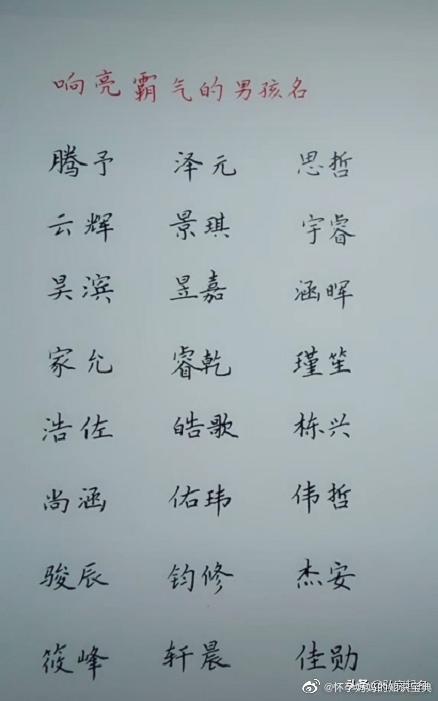 响亮霸气的男孩名
腾予 泽元 思哲
云辉 景琪 宇睿
昊滨 昱嘉 涵晖
家允 睿乾 瑾笙
浩佐 皓歌 栋兴
尚涵 佑玮 伟哲
骏辰 钧修 杰安
筱峰 轩晨 佳勋
@怀孕妈妈的知识宝典